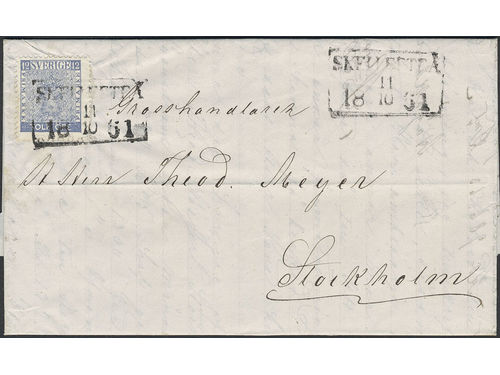 12 SVERIGE 12
SKELLEFTEÅ
11
18 10 61
SKELLEFTEÅ
11
18 10 61
Grosshandlaren
Theod. Meyer
Stockholm